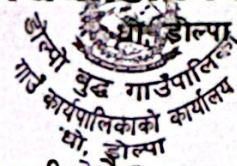 धो, डोल्पा
डोल्पो बुद्ध गाउँपालिका
गाउँ कार्यपालिकाको कार्यालय
धो, डोल्पा